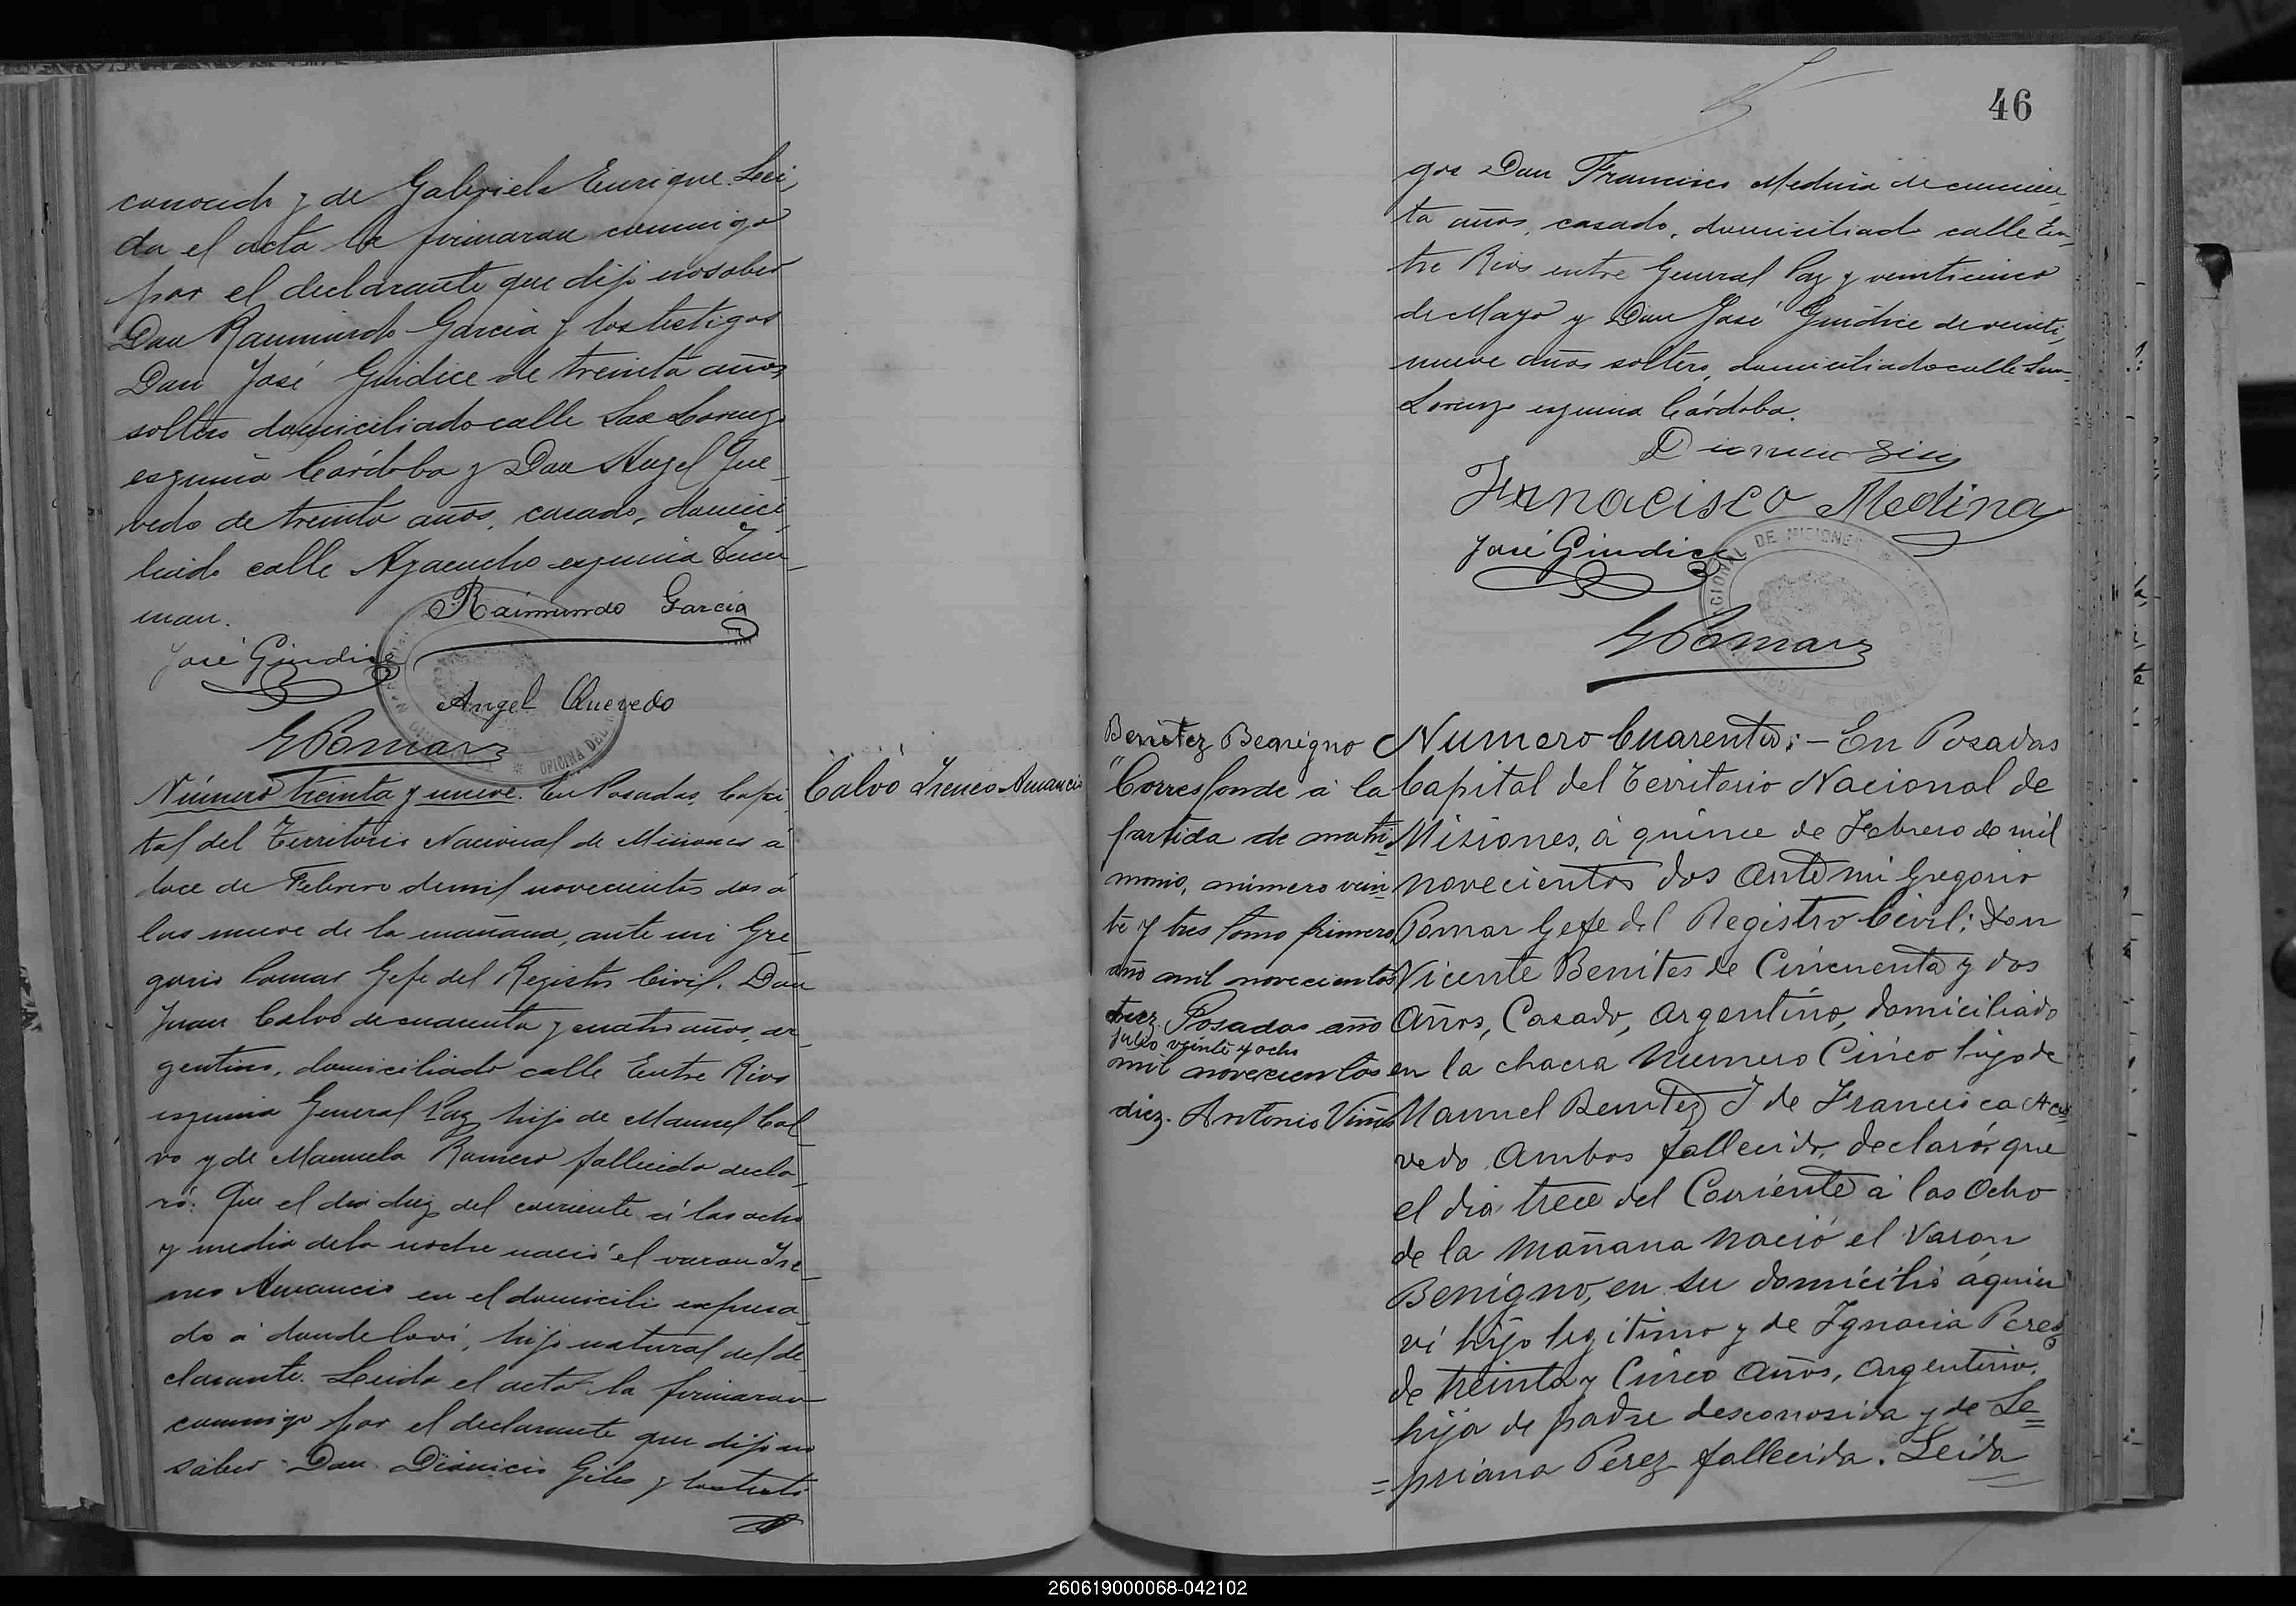 conocido y de Gabriela Enrique. Lei,
da el acta la firmaron conmigo
por el declarante que dijo no saber
Don Raimundo Garcia y los testigos
Don José Giudice de treinta años
soltero domiciliado calle San Lorenzo
esquina Córdoba y Don Angel Que
vedo de treinta años, casado, domici
liado calle Ayacucho esquina Tucu
man.
Raimundo Garcia
José Giudice
Angel Quevedo
G Pomar
Número treinta y nueve. En Posadas, Capi
tal del Territorio Nacional de Misiones á
doce de Febrero de mil novecientos dos á
las nueve de la mañana, ante mi Gre
gorio Pomar Gefe del Registro Civil. Don
Juan Calvo de cuarenta y cuatro años, ar
gentino, domiciliado calle Entre Rios
esquina General Paz hijo de Manuel Cal
vo y de Manuela Romero fallecida decla
ró: Que el dia diez del corriente á las ocho
y media de la noche nació el varon Ire
neo Amancio en el domicilio expresa
do á donde lo vi, hijo natural del de
clarante. Leida el acta la firmaron
conmigo por el declarante que dijo no
saber Don Dionicio Giles y los testi
Calvo Ireneo Amancio
46
gos Don Francisco Medina de cincuen
ta años, casado, domiciliado calle En
tre Rios entre General Paz y veinticinco
de Mayo y Don José Giudice de veinti,
nueve años soltero, domiciliado calle San
Lorenzo esquina Córdoba.
Francisco Medina
José Giudice
G Pomar
Benitez Benigno
"Corresponde á la
partida de matri-
monio, número vein-
te y tres tomo primero
año mil novecientos
diez. Posadas año
Julio veinte y ocho
mil novecientos
diez. Antonio Viñas
Numero Cuarenta: - En Posadas
Capital del Territorio Nacional de
Misiones, á quince de Febrero de mil
novecientos dos Ante mi Gregorio
Pomar Gefe del Registro Civil; Don
Vicente Benites de Cincuenta y dos
Años, Casado, Argentino, domiciliado
en la chacra Numero Cinco hijo de
Manuel Benitez I de Francisca Ace=
vedo. Ambos fallecido, declaró: que
el dia trece del Corriente á las Ocho
de la Mañana Nació el Varon
Benigno, en su domicilio á quien
vi hijo legitimo y de Ygnacia Perez
de treinta y Cinco Años, Argentina,
hija de padre desconosida y de Se=
=priana Perez fallecida. Leida
260619000068-042102